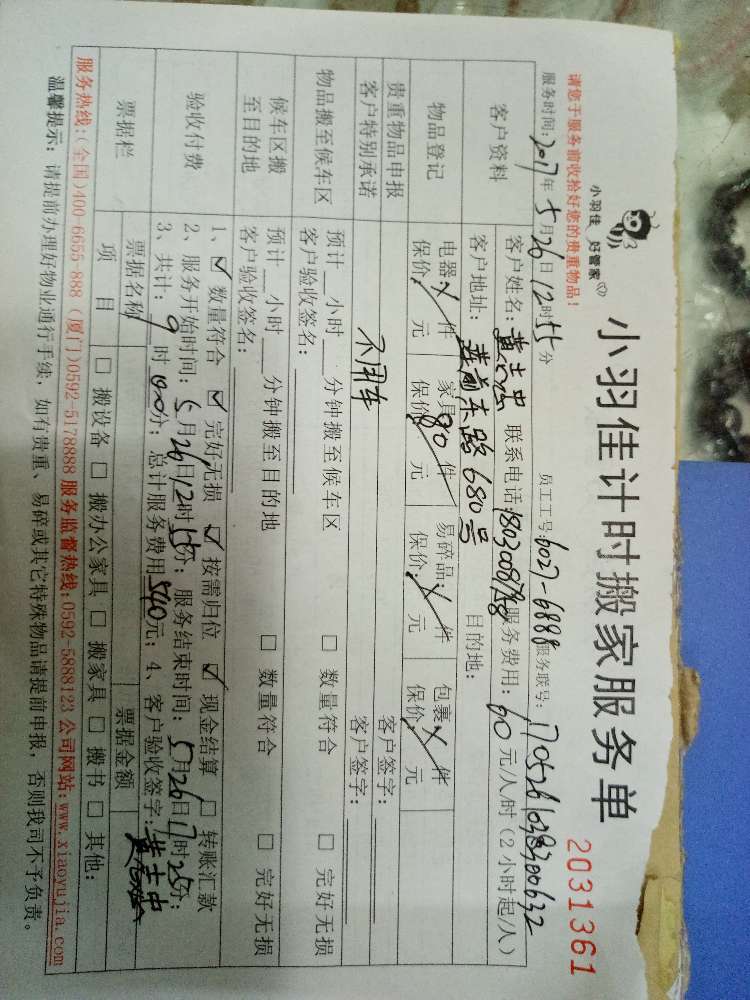 小羽佳 好管家
小羽佳计时搬家服务单
2031361
请您于服务前收拾好您的贵重物品！
服务时间：2017年5月26日12时55分
员工工号：6027-6888
服务联号：
客户资料
客户姓名：
联系电话：
服务费用：60元/人/时（2小时起/人）
客户地址：
东路680号
目的地：
物品登记
电器：件
家具：80件
易碎品：件
包裹：件
保价：元
保价：元
保价：元
保价：元
贵重物品申报
客户签字：
客户特别承诺
不用车
客户签字：
物品搬至候车区
预计 小时 分钟搬至候车区
□ 数量符合
□ 完好无损
客户验收签名：
候车区搬至目的地
预计 小时 分钟搬至目的地
□ 数量符合
□ 完好无损
客户验收签名：
验收付费
1、☑ 数量符合 ☑ 完好无损 ☑ 按需归位 ☑ 现金结算 □ 转账汇款
2、服务开始时间：5月26日12时55分；服务结束时间：5月26日17时25分；
3、共计：9时00分；总计服务费用540元；4、客户验收签字：
票据栏
票据名称
票据金额
项目
□ 搬设备 □ 搬办公家具 □ 搬家具 □ 搬书 □ 其他：
服务热线：(全国)400-6655-888 (厦门)0592-5178888 服务监督热线：0592-5888123 公司网站：www.xiaoyujia.com
温馨提示：请提前办理好物业通行手续，如有贵重、易碎或其它特殊物品请提前申报，否则我司不予负责。